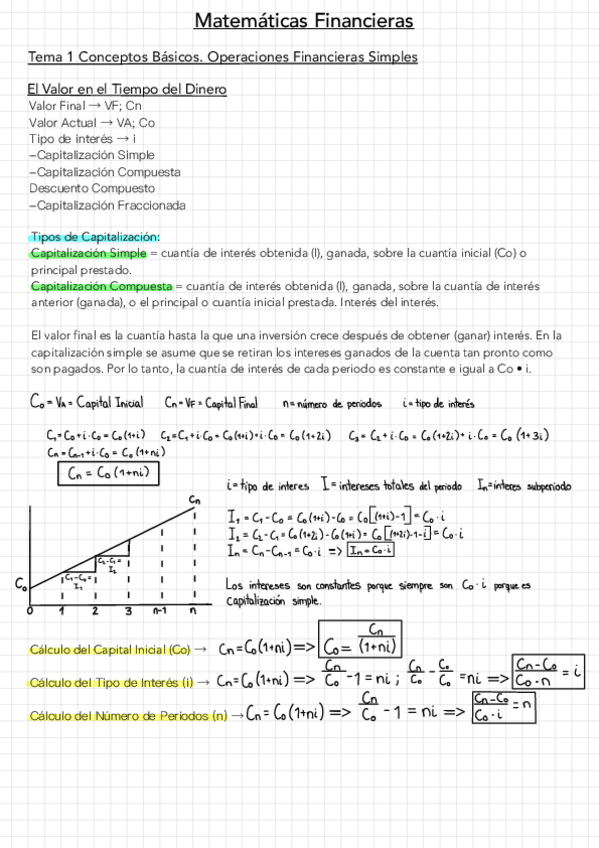 Matemáticas Financieras
Tema 1 Conceptos Básicos. Operaciones Financieras Simples
El Valor en el Tiempo del Dinero
Valor Final → VF; Cn
Valor Actual → VA; Co
Tipo de interés → i
–Capitalización Simple
–Capitalización Compuesta
Descuento Compuesto
–Capitalización Fraccionada
Tipos de Capitalización:
Capitalización Simple = cuantía de interés obtenida (I), ganada, sobre la cuantía inicial (Co) o
principal prestado.
Capitalización Compuesta = cuantía de interés obtenida (I), ganada, sobre la cuantía de interés
anterior (ganada), o el principal o cuantía inicial prestada. Interés del interés.
El valor final es la cuantía hasta la que una inversión crece después de obtener (ganar) interés. En la
capitalización simple se asume que se retiran los intereses ganados de la cuenta tan pronto como
son pagados. Por lo tanto, la cuantía de interés de cada periodo es constante e igual a Co • i.
C₀ = VA = Capital Inicial Cn = VF = Capital Final n = número de periodos i = tipo de interés
C₁ = C₀ + i · C₀ = C₀ (1+i) C₂ = C₁ + i · C₀ = C₀(1+i) + i · C₀ = C₀ (1+2i) C₃ = C₂ + i · C₀ = C₀ (1+2i) + i · C₀ = C₀ (1+3i)
Cn = Cn-1 + i · C₀ = C₀ (1+ni)
Cn = C₀ (1+ni)
i = tipo de interes I = intereses totales del periodo In = interes subperiodo
Cn
I₁ = C₁ - C₀ = C₀(1+i) - C₀ = C₀[(1+i)-1] = C₀ · i
I₂ = C₂ - C₁ = C₀(1+2i) - C₀(1+i) = C₀[(1+2i)-1-i] = C₀ · i
In = Cn - Cn-1 = C₀ · i => In = C₀ · i
C₂-C₁=
I₂
C₁-C₀=
I₁
C₀
Los intereses son constantes porque siempre son C₀ · i porque es
capitalización simple.
0 1 2 3 n-1 n
Cálculo del Capital Inicial (Co) → Cn = C₀(1+ni) => C₀ = Cn/(1+ni)
Cálculo del Tipo de Interés (i) → Cn = C₀(1+ni) => Cn/C₀ - 1 = ni ; Cn/C₀ - C₀/C₀ = ni => Cn-C₀/C₀·n = i
Cálculo del Número de Periodos (n) → Cn = C₀(1+ni) => Cn/C₀ - 1 = ni => Cn-C₀/C₀·i = n